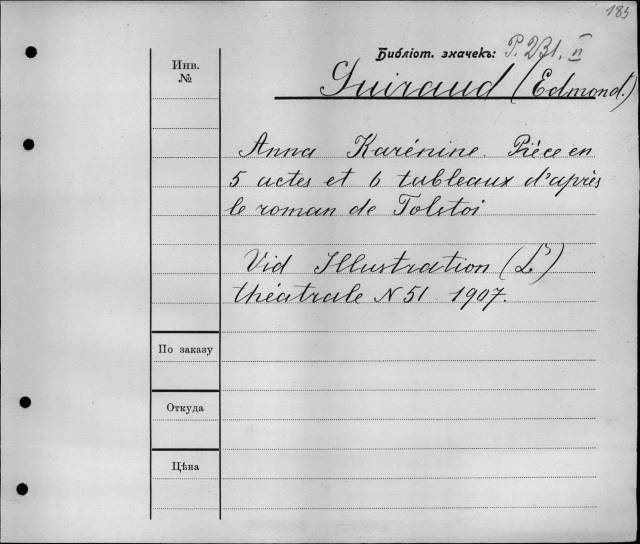 185
Библіот. значекъ: P. 231. II
Guiraud (Edmond.)
Инв.
№
Anna Karénine. Piéce en
5 actes et 6 tableaux d'après
le roman de Tolstoi
Vid Illustration (L')
théatrale N 51 1907.
По заказу
Откуда
Цѣна